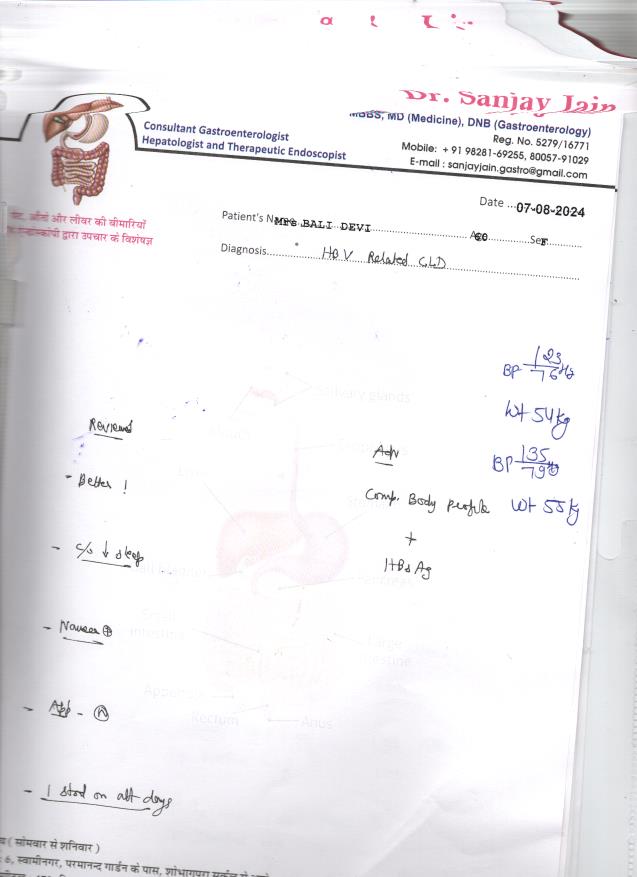 Dr. Sanjay Jain
MBBS, MD (Medicine), DNB (Gastroenterology)
Reg. No. 5279/16771
Mobile: + 91 98281-69255, 80057-91029
E-mail : sanjayjain.gastro@gmail.com
Consultant Gastroenterologist
Hepatologist and Therapeutic Endoscopist
पेट, आँतों और लीवर की बीमारियों
एण्डोस्कोपी द्वारा उपचार के विशेषज्ञ
Date ...07-08-2024
Patient's Name MRS BALI DEVI Age 60 Sex F
Diagnosis HBV Related CLD
BP 123/76
Wt 54 kg
Reviewed
Adv
BP 135/79
- Better !
Comp. Body profile
Wt 55 kg
+
HBsAg
- c/o ↓ sleep
- Nausea ⊕
- App - Ⓝ
- 1 stool on alt days
Salivary glands
Mouth
Liver
Gall bladder
Pancreas
Small
intestine
Large
intestine
Appendix
Rectum
Anus
( सोमवार से शनिवार )
6, स्वामीनगर, परमानन्द गार्डन के पास, शोभागपुरा सर्कल